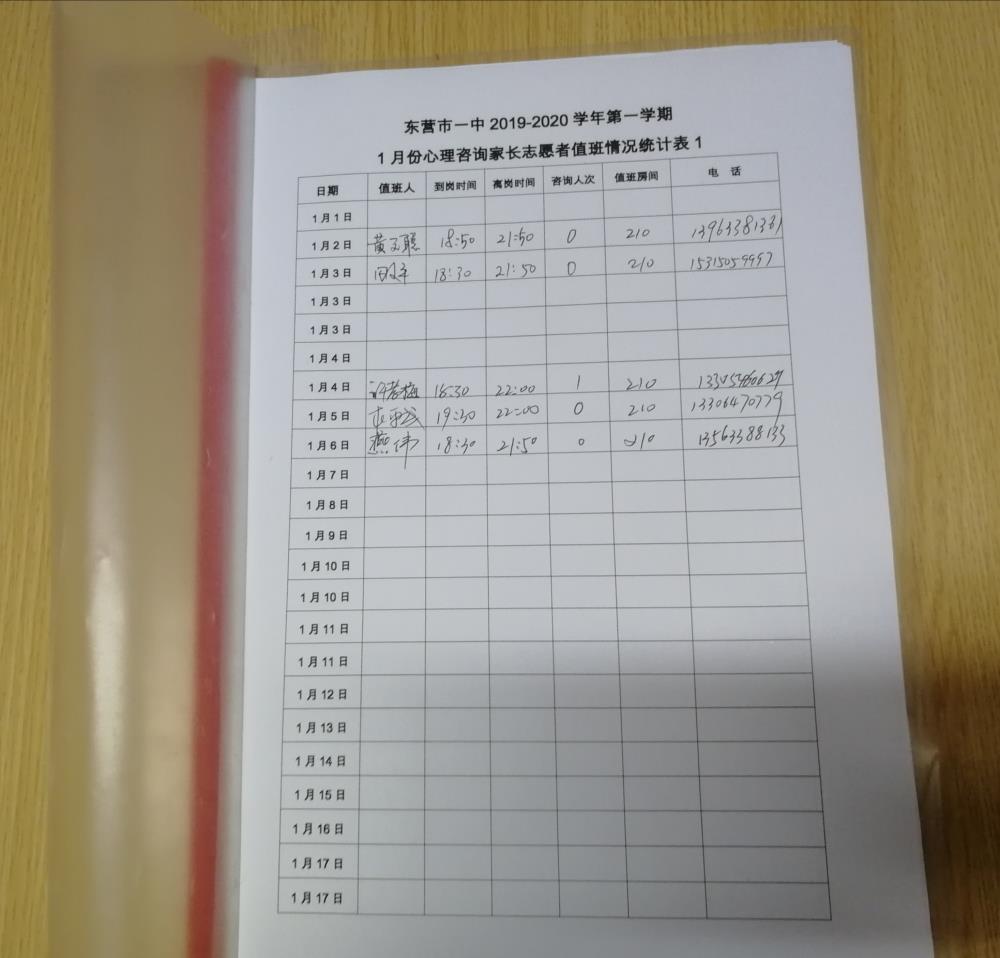 东营市一中 2019-2020 学年第一学期
1 月份心理咨询家长志愿者值班情况统计表 1
日期 值班人 到岗时间 离岗时间 咨询人次 值班房间 电 话
1 月 1 日
1 月 2 日 黄文聪 18:50 21:50 0 210
1 月 3 日 18:30 21:50 0 210
1 月 3 日
1 月 3 日
1 月 4 日
1 月 4 日 22:00 1 210
1 月 5 日 19:30 22:00 0 210 13306470779
1 月 6 日 燕伟 18:30 21:50 0 210 13563388133
1 月 7 日
1 月 8 日
1 月 9 日
1 月 10 日
1 月 10 日
1 月 11 日
1 月 11 日
1 月 12 日
1 月 13 日
1 月 14 日
1 月 15 日
1 月 16 日
1 月 17 日
1 月 17 日